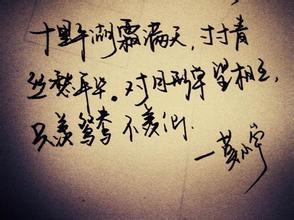 十里平湖霜满天，寸寸青
丝愁年华。对月形单望相互，
只羡鸳鸯不羡仙.